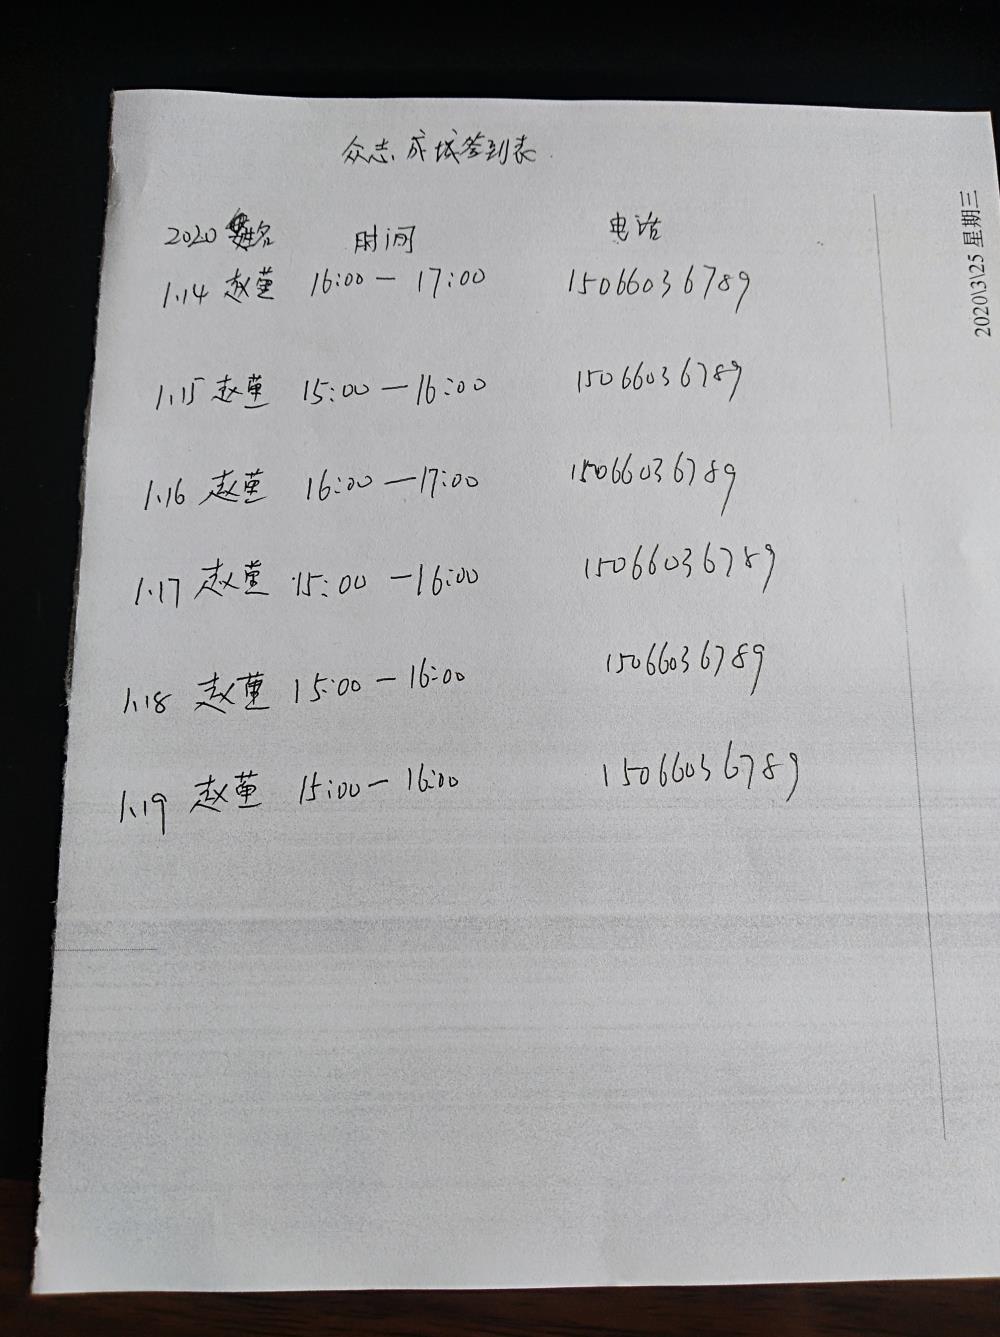 众志成城签到表
2020 姓名 时间 电话
1.14 赵堇 16:00 — 17:00 15066036789
1.15 赵堇 15:00 — 16:00 15066036789
1.16 赵堇 16:00 — 17:00 15066036789
1.17 赵堇 15:00 — 16:00 15066036789
1.18 赵堇 15:00 — 16:00 15066036789
1.19 赵堇 15:00 — 16:00 15066036789
2020\3\25 星期三